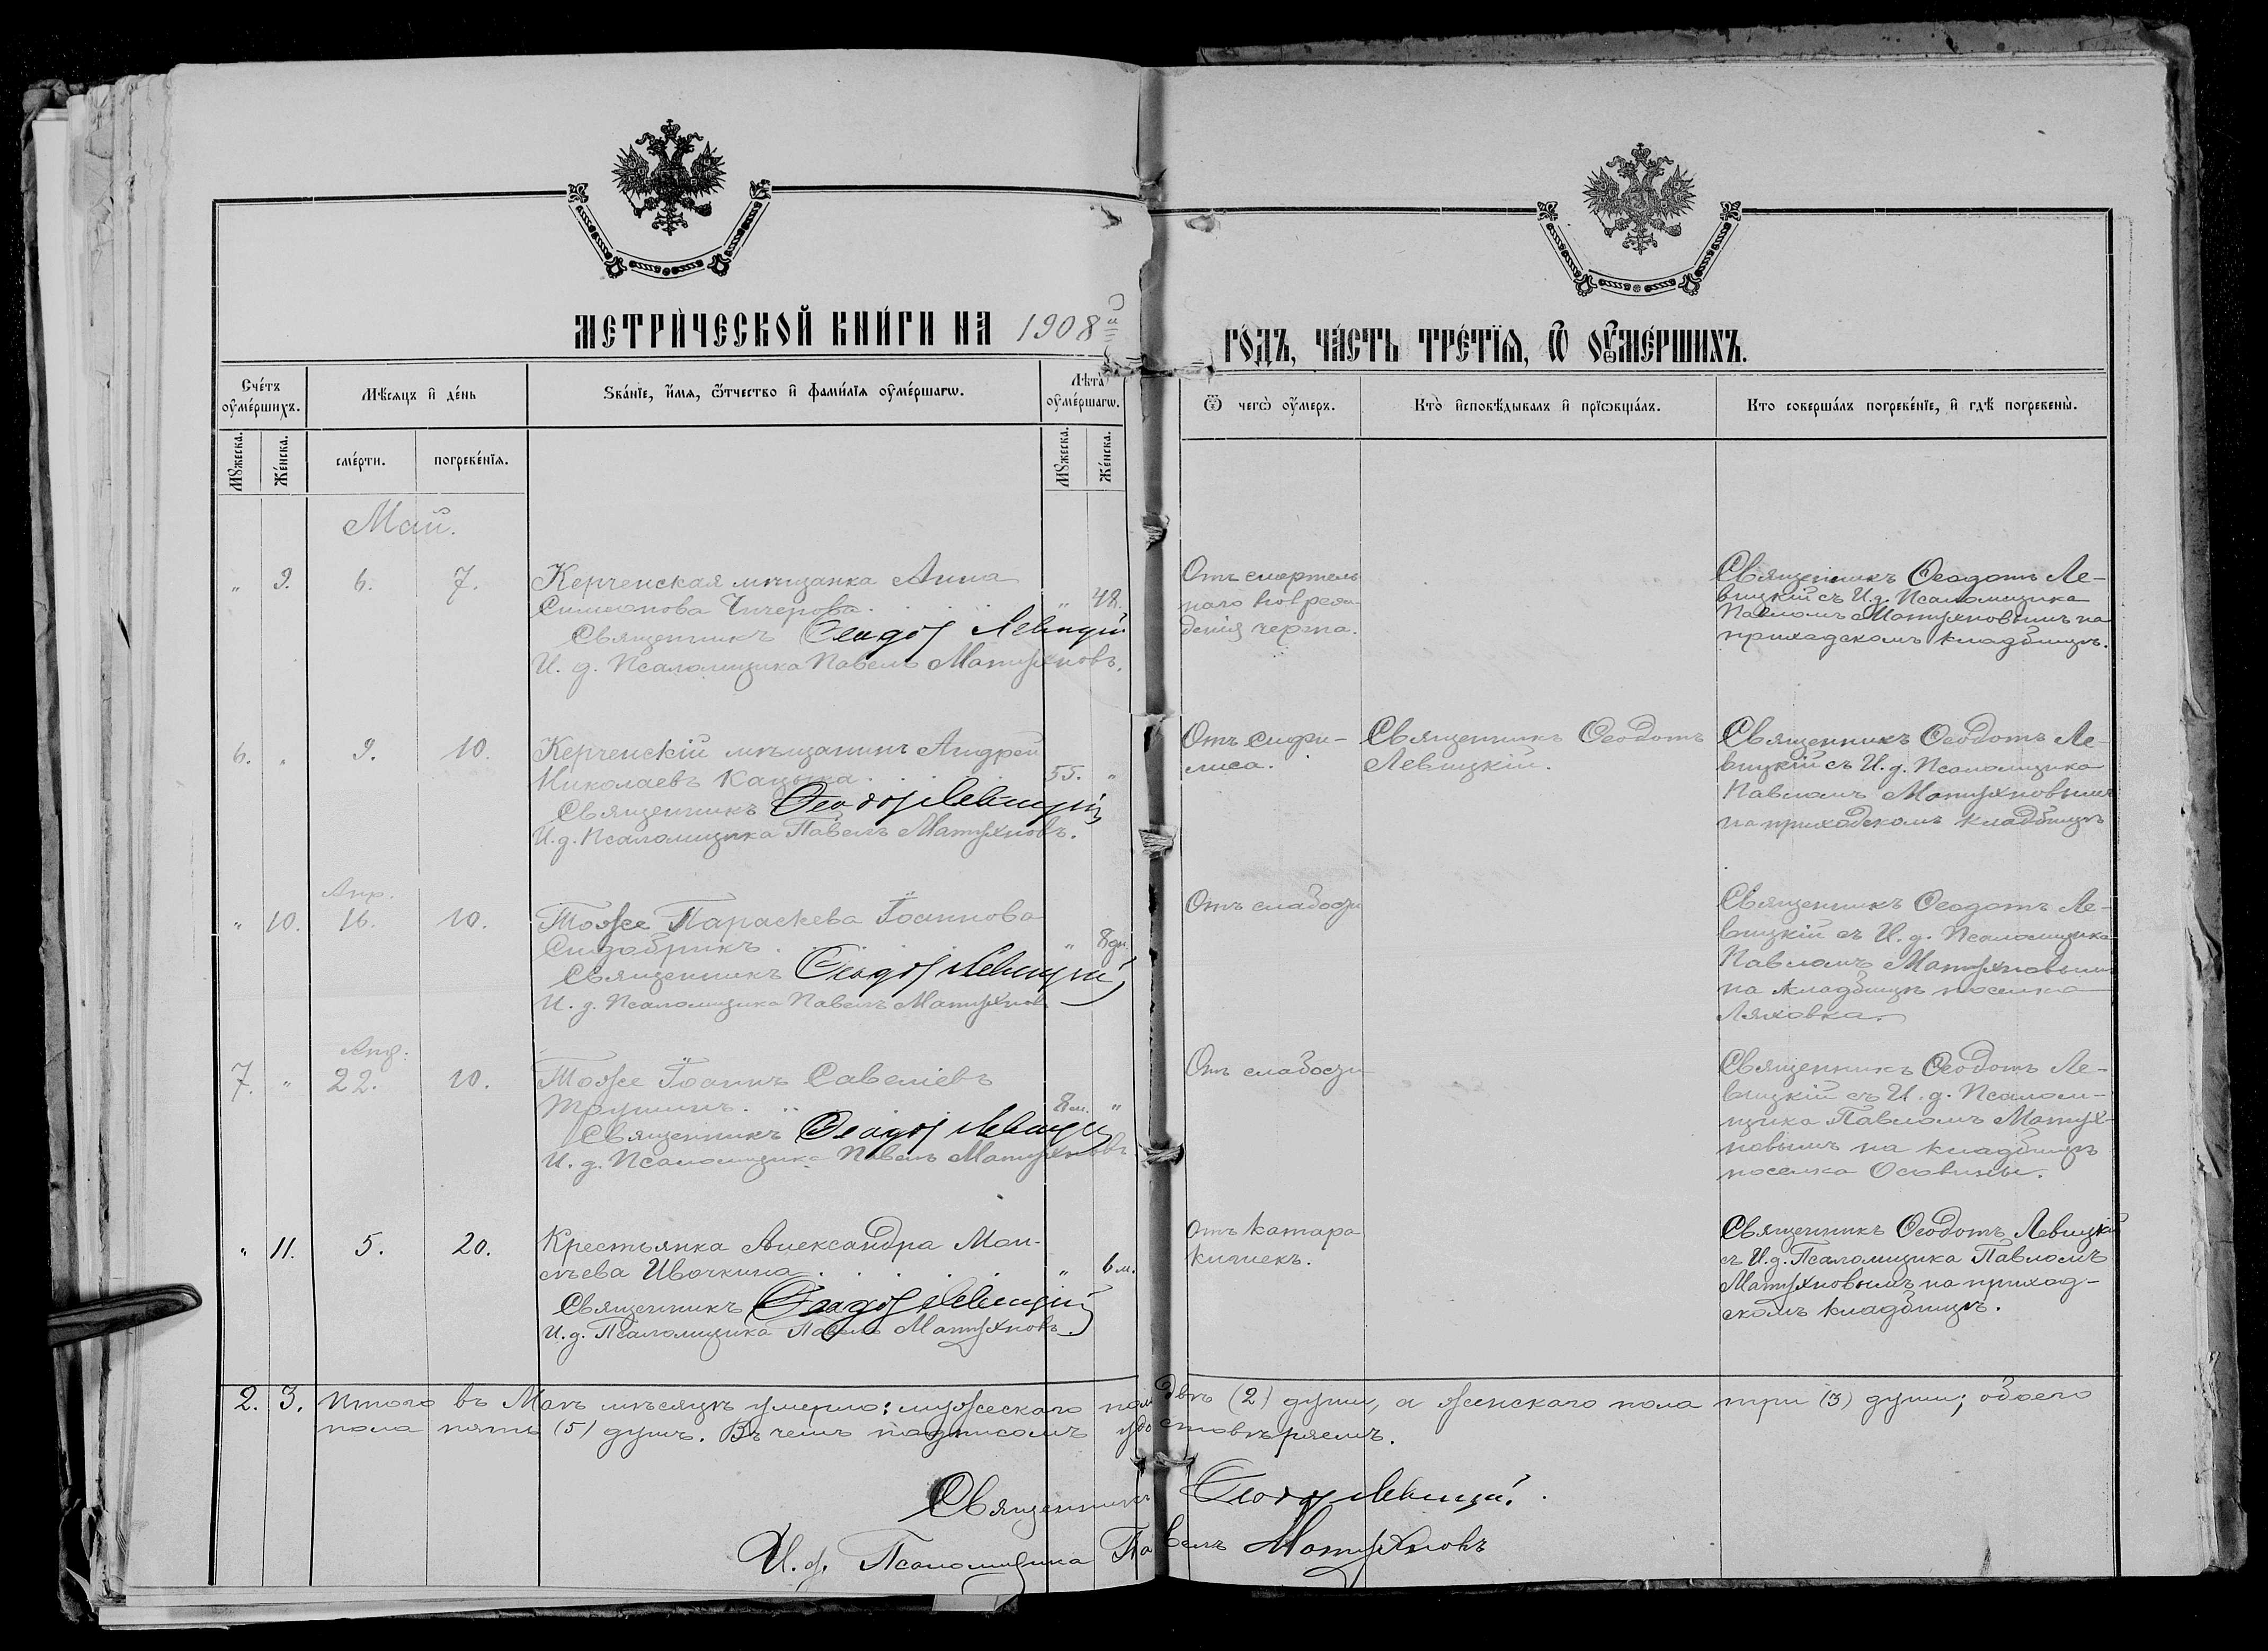 МЕТРИ́ЧЕСКОЙ КНИ́ГИ НА 1908й
ГО́ДЪ, ЧА́СТЬ ТРЕ́ТЇѦ, Ѿ ОУМЕ́РШИХЪ.
Сче́тъ оумершихъ.
Мѣсяцъ и де́нь
Зва́нїе, и́мя, ѻ́тчество и фами́лїя оуме́ршагѡ.
Лѣта оуме́ршагѡ.
Ѿ чегѡ̀ оу́меръ.
Кто̀ исповѣ́дывалъ и прїѡбща́лъ.
Кто соверша́лъ погребе́нїе, и гдѣ̀ погребены̀.
Мꙋжеска.
Же́нска.
сме́рти.
погребе́нїя.
Мꙋжеска.
Же́нска.
Май.
" 9. 6. 7. Керченская мѣщанка Анна
Симонова Чичерова. " 48.
Священникъ Ѳеодот Левицкій
И. д. Псаломщика Павелъ Матухновъ.
Отъ смертель
наго повреж
денія
Священникъ Ѳеодотъ Ле-
вицкій съ И.д. Псаломщика
Павломъ Матухновымъ на
приходскомъ кладбищѣ.
6. " 9. 10. Керченскій мѣщанинъ Андрей
Николаевъ Кацыка. 55. "
Священникъ Ѳеодот Левицкій
И.д. Псаломщика Павелъ Матухновъ.
Отъ сифи-
лиса.
Священникъ Ѳеодотъ
Левицкій.
Священникъ Ѳеодотъ Ле-
вицкій съ И.д. Псаломщика
Павломъ Матухновымъ
на приходскомъ кладбищѣ
Апр.
" 10. 16. 10. Тоже Параскева Іоаннова
" 8 дн.
Священникъ Ѳеодот Левицкій
И. д. Псаломщика Павелъ Матухновъ
Отъ слабости
Священникъ Ѳеодотъ Ле-
вицкій съ И. д. Псаломщика
Павломъ Матухновымъ
на кладбищѣ поселка
Ляховка.
Апр.
7. " 22. 10. Тоже Іоаннъ Савеліевъ
8 м. "
Священникъ Ѳеодот Левицкій
И. д. Псаломщика Павелъ Матухновъ
Отъ слабости
Священникъ Ѳеодотъ Ле-
вицкій съ И. д. Псалом-
щика Павломъ Матух-
новымъ на кладбищѣ
поселка Осовины.
" 11. 5. 20. Крестьянка Александра Мои-
сѣева Ивочкина " 6 м.
Священникъ Ѳеодот Левицкій
И.д. Псаломщика Павелъ Матухновъ
Отъ катара
кишекъ.
Священникъ Ѳеодотъ Левицкій
съ И.д. Псаломщика Павломъ
Матухновымъ на приход-
скомъ кладбищѣ.
2. 3. Итого въ Маѣ мѣсяцѣ умерло: мужескаго пола двѣ (2) души, а женскаго пола три (3) души; обоего
пола пять (5) душъ. Въ чемъ подписомъ удостовѣряемъ.
Священникъ Ѳеодот Левицкій.
И. д. Псаломщика Павелъ Матухновъ